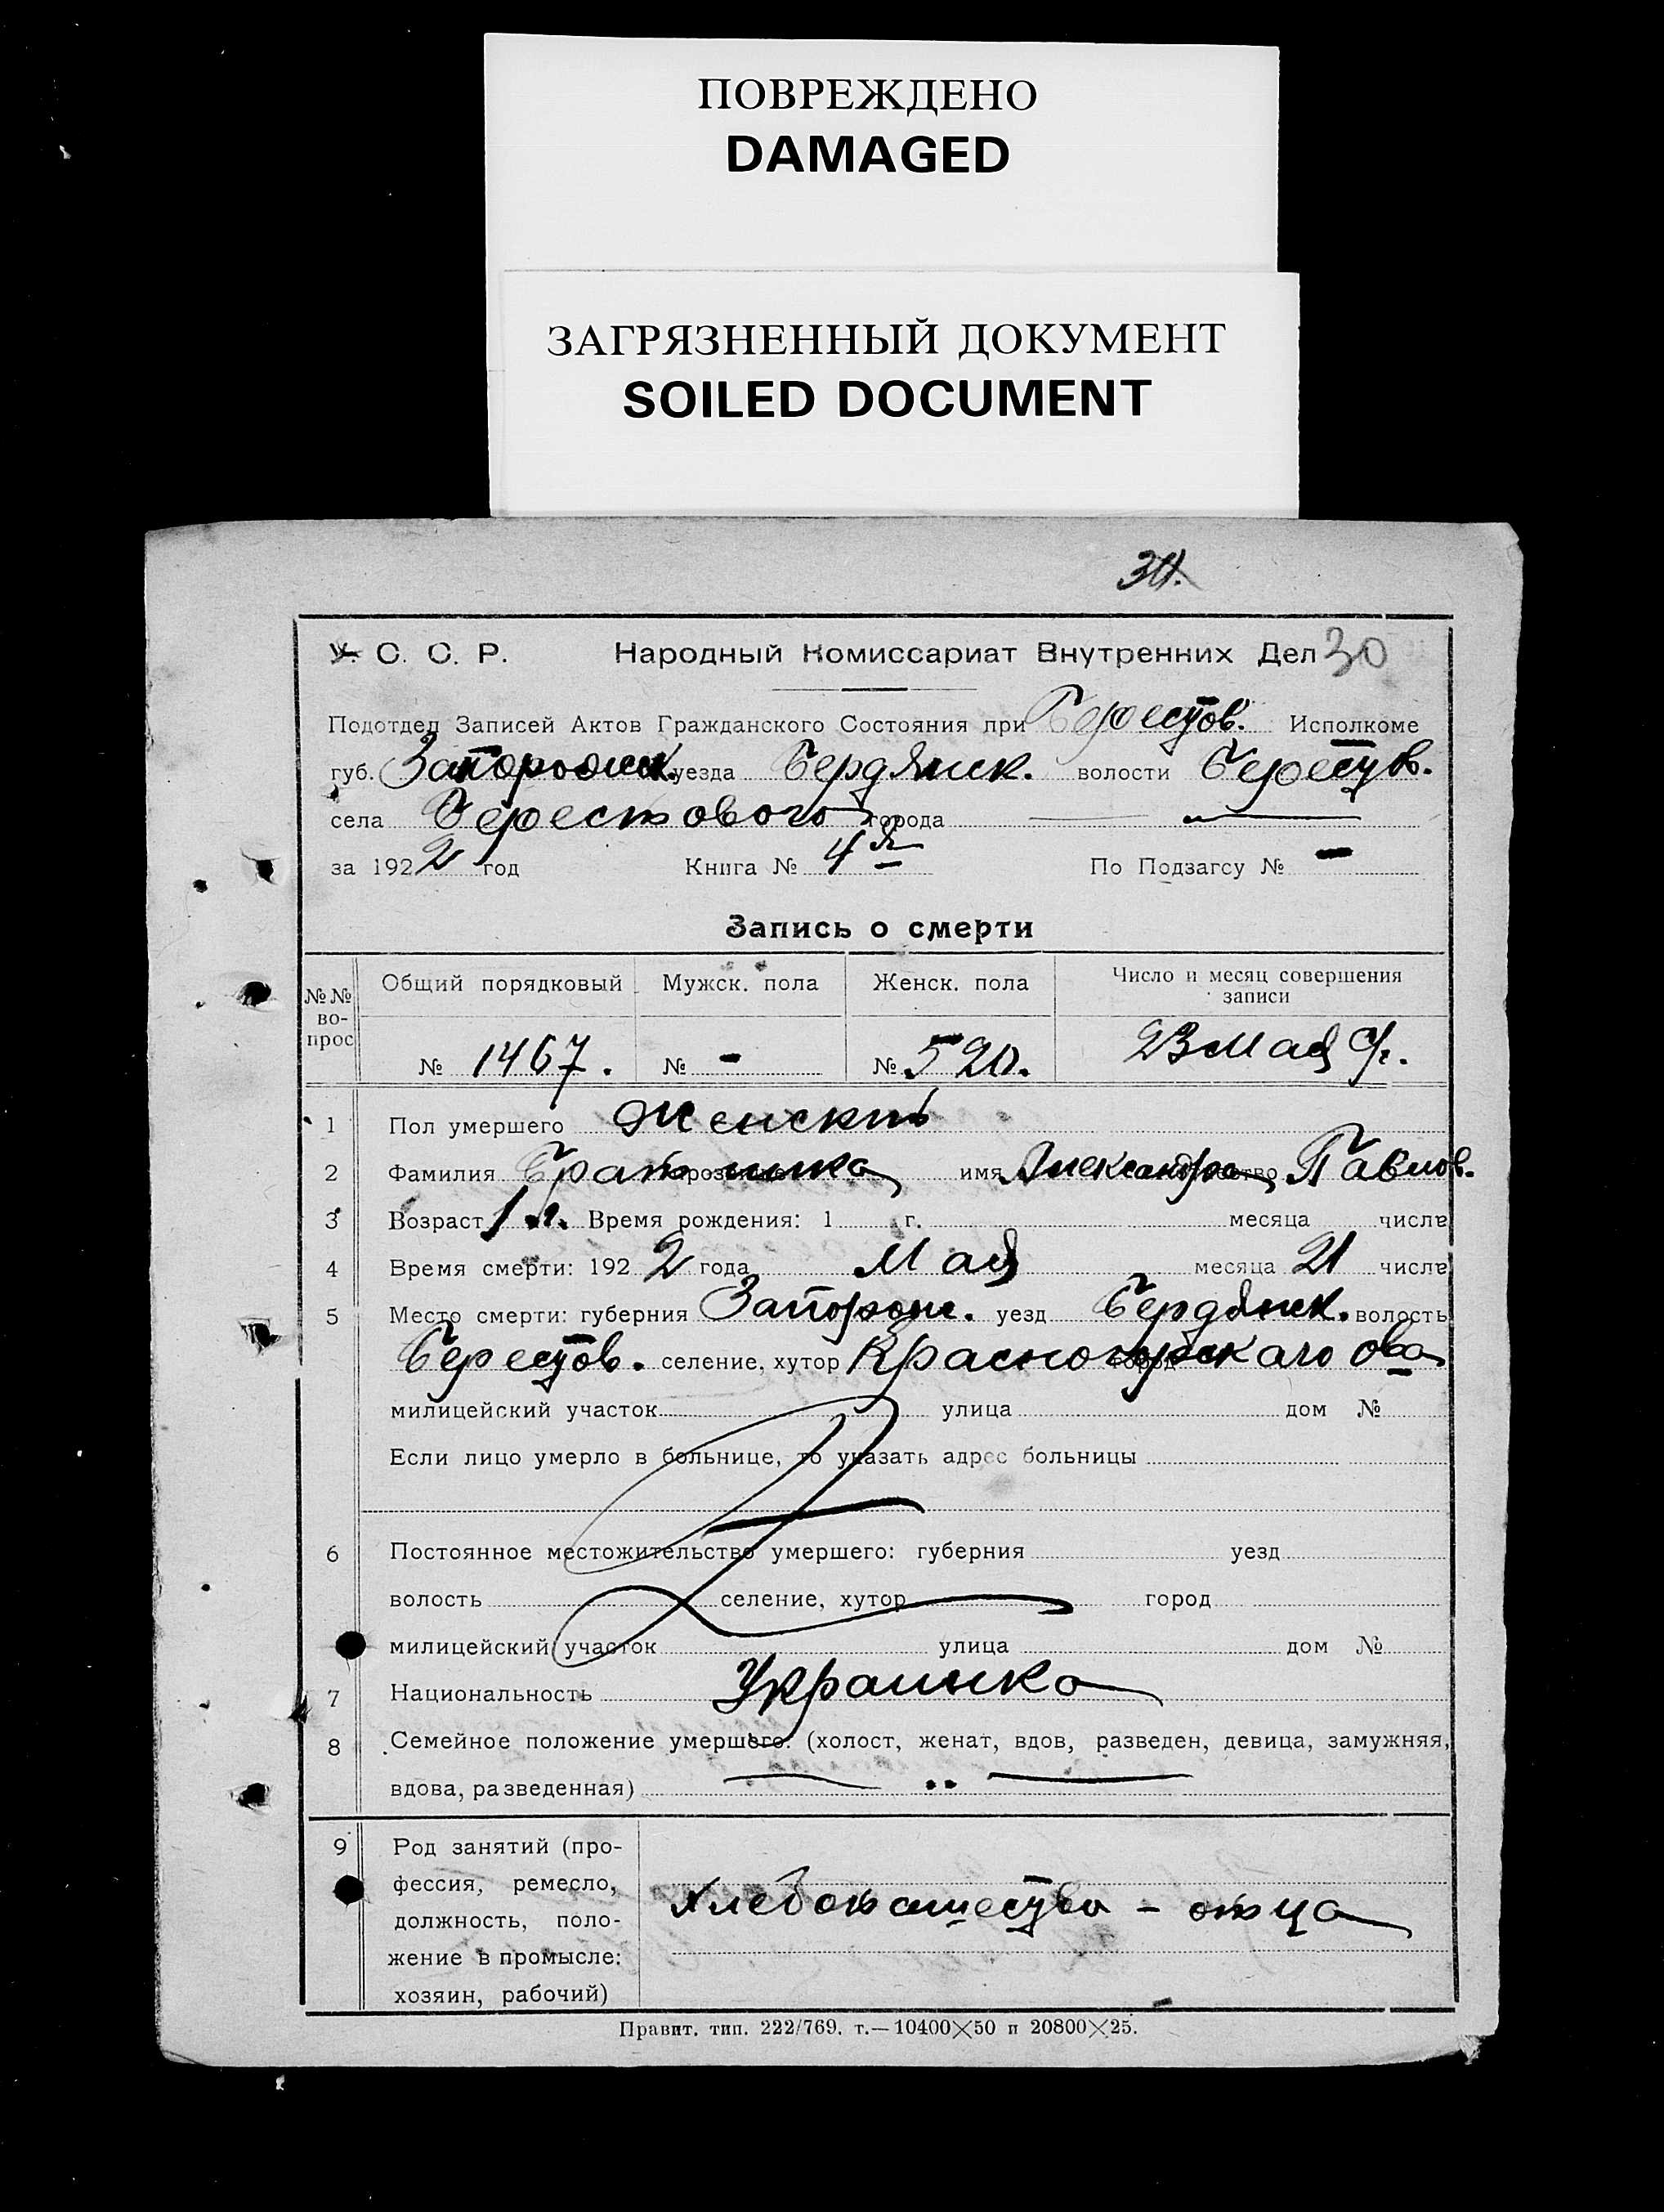 ПОВРЕЖДЕНО
DAMAGED
ЗАГРЯЗНЕННЫЙ ДОКУМЕНТ
SOILED DOCUMENT
У. С. С. Р. Народный Комиссариат Внутренних Дел 30
Подотдел Записей Актов Гражданского Состояния при Берестов. Исполкоме
губ. Запорожск. уезда Бердянск. волости Берестов.
села Берестового города —
за 1922 год Книга № 4я По Подзагсу № —
Запись о смерти
№№ вопрос Общий порядковый Мужск. пола Женск. пола Число и месяц совершения
записи
№ 1467. № - № 520. 23 Мая с/г.
1 Пол умершего Женскiй
2 Фамилия имя Александра Павлов.
3 Возраст 1 г. Время рождения: 1 г. месяца числа
4 Время смерти: 1922 года Мая месяца 21 числа
5 Место смерти: губерния Запорож. уезд Бердянск. волость
Берестов. селение, хутор Красногорскаго ова
милицейский участок улица дом №
Если лицо умерло в больнице, то указать адрес больницы
6 Постоянное местожительство умершего: губерния уезд
волость селение, хутор город
милицейский участок улица дом №
7 Национальность Украинка
8 Семейное положение умершего: (холост, женат, вдов, разведен, девица, замужняя,
вдова, разведенная) —
9 Род занятий (про-
фессия, ремесло,
должность, поло- Хлебопашество - отца
жение в промысле:
хозяин, рабочий)
Правит. тип. 222/769. т.—10400×50 п 20800×25.